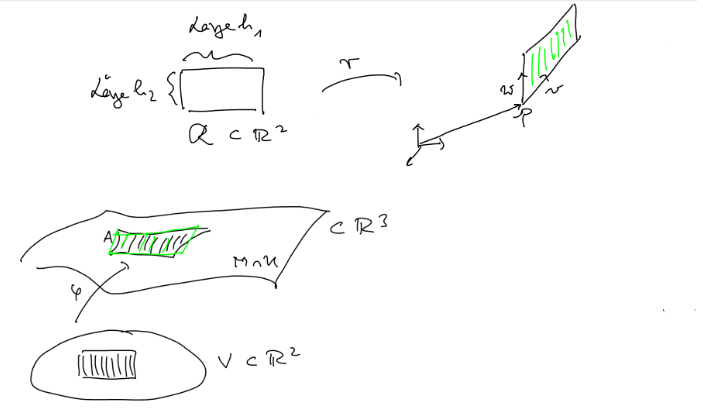 Länge h₁
Länge h₂
Q ⊂ ℝ²
r
w
v
p
⊂ ℝ³
A
M∩U
φ
V ⊂ ℝ²